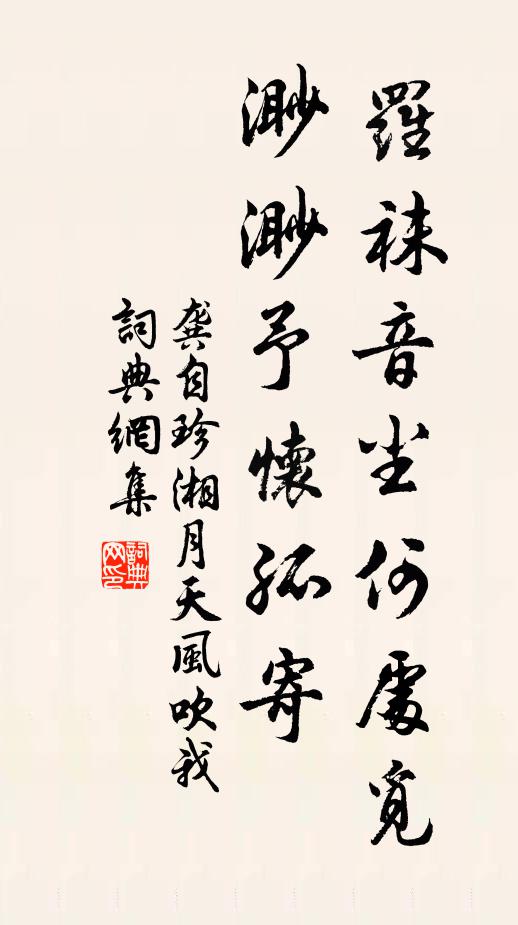 羅袜音尘何處覓
渺渺予懷孤寄
龚自珍湘月天風吹我
詞典網集
詞典网印